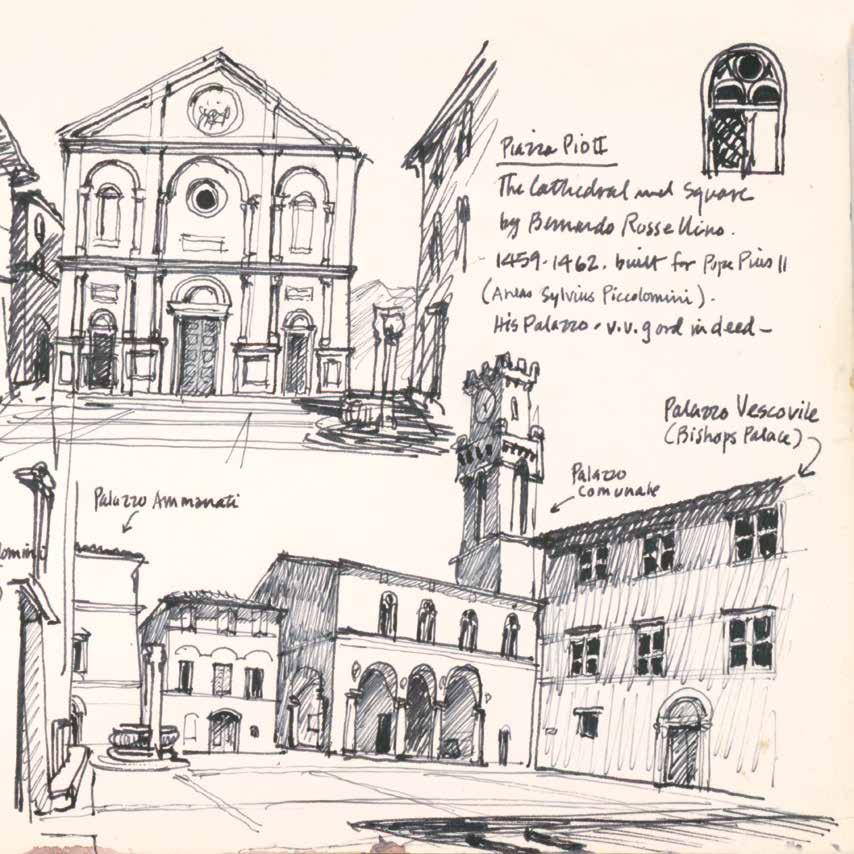 Piazza Pio II
The Cathedral and Square
by Bernardo Rossellino.
1459-1462. built for Pope Pius II
(Aneas Sylvius Piccolomini).
His Palazzo. v.v. good indeed -
Palazzo Vescovile
(Bishops Palace)
Palazzo
Comunale
Palazzo Ammanati
lomini